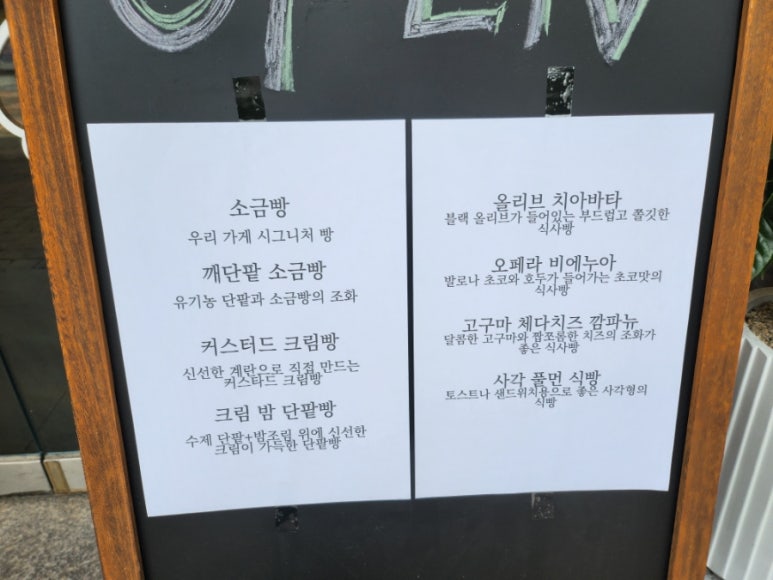 OPEN
소금빵
우리 가게 시그니처 빵
깨단팥 소금빵
유기농 단팥과 소금빵의 조화
커스터드 크림빵
신선한 계란으로 직접 만드는
커스타드 크림빵
크림 밤 단팥빵
수제 단팥+밤조림 위에 신선한
크림이 가득한 단팥빵
올리브 치아바타
블랙 올리브가 들어있는 부드럽고 쫄깃한
식사빵
오페라 비에누아
발로나 초코와 호두가 들어가는 초코맛의
식사빵
고구마 체다치즈 깜파뉴
달콤한 고구마와 짭쪼롬한 치즈의 조화가
좋은 식사빵
사각 풀먼 식빵
토스트나 샌드위치용으로 좋은 사각형의
식빵